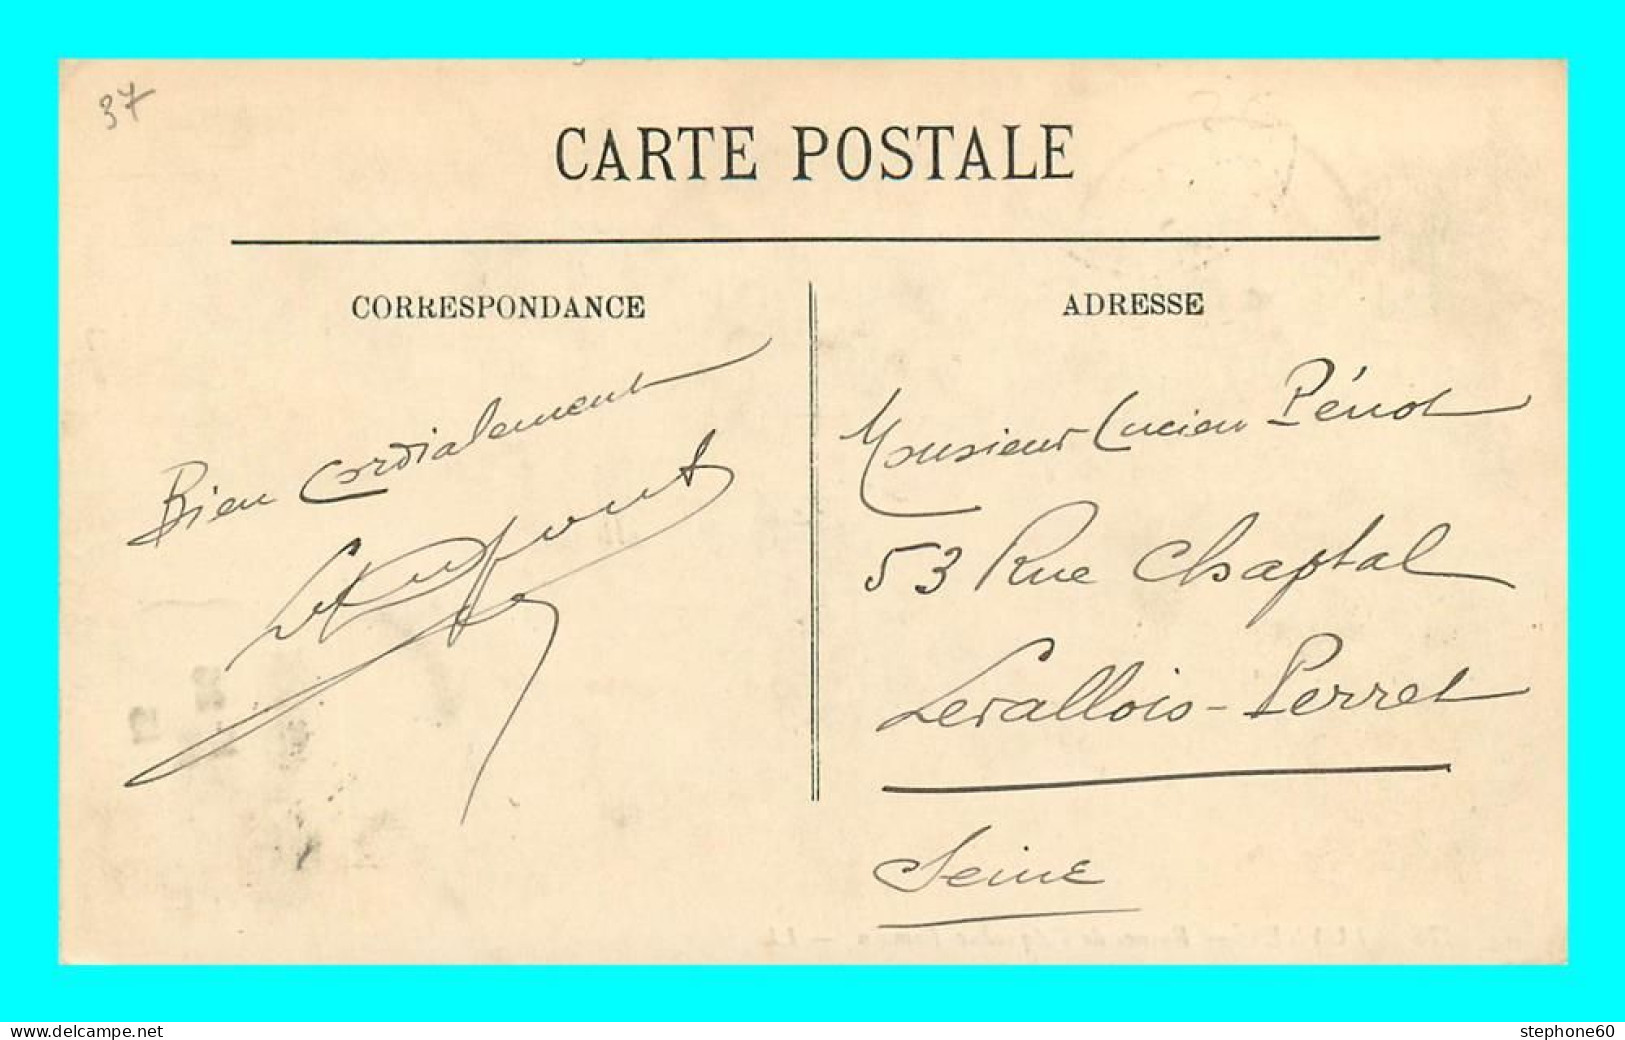 37
CARTE POSTALE
CORRESPONDANCE
ADRESSE
Bien Cordialement
Monsieur Lucien Pénot
53 Rue Chaptal
Levallois-Perret
Seine
www.delcampe.net
stephone60